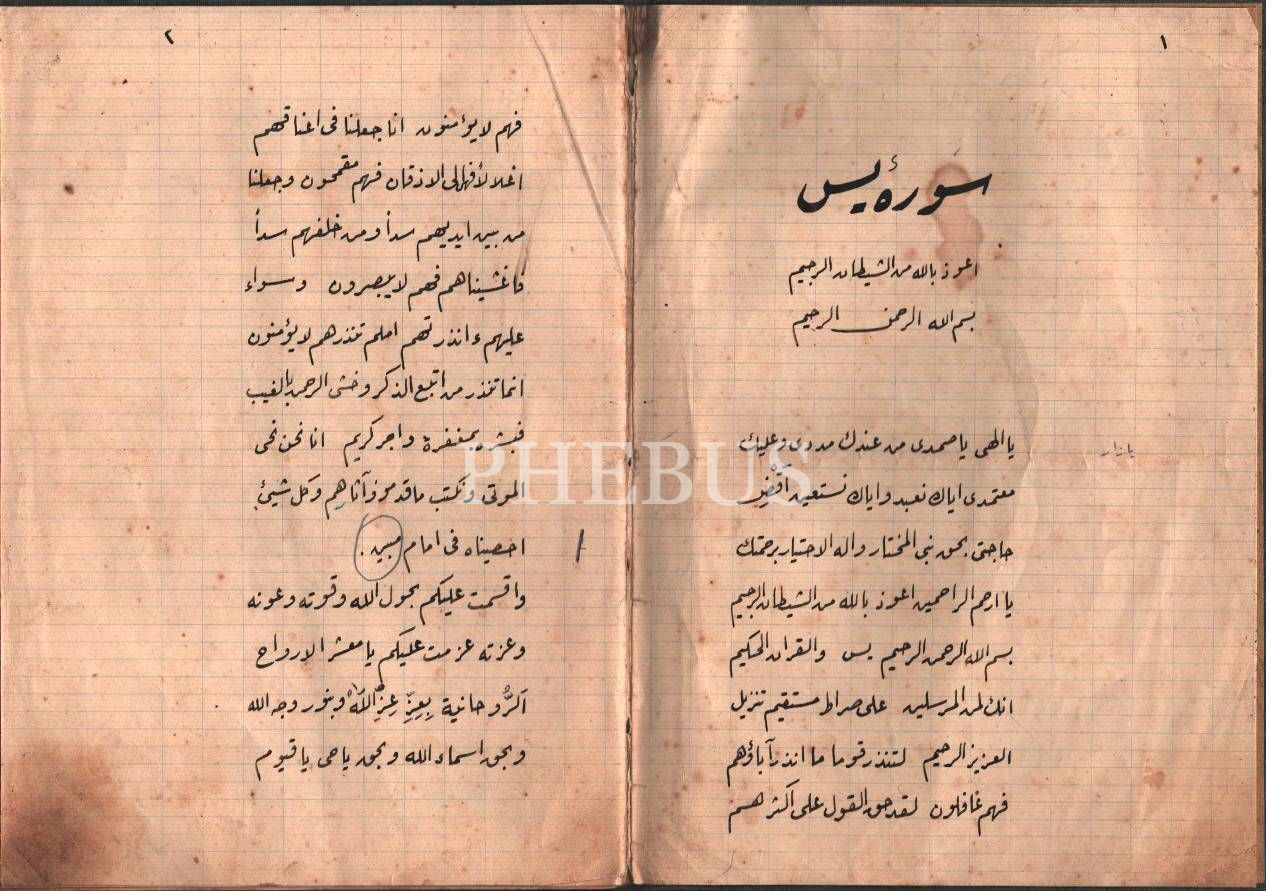 ١
سورهٔ يس
اعوذ بالله من الشيطان الرجيم
بسم الله الرحمن الرحيم
يا الهى يا صمدى من عندك مددى وعليك
معتمدى اياك نعبد واياك نستعين اَقْضِ
حاجتى بحق نبى المختار واله الاحتيار برحمتك
يا ارحم الراحمين اعوذ بالله من الشيطان الرجيم
بسم الله الرحمن الرحيم يس والقران الحكيم
انك لمن المرسلين على صراط مستقيم تنزيل
العزيز الرحيم لتنذر قوما ما انذر آباؤهم
فهم غافلون لقد حق القول على اكثرهم
٢
فهم لا يؤمنون انا جعلنا فى اعناقهم
اغلالأ فهى الى الاذقان فهم مقمحون وجعلنا
من بين ايديهم سدأ ومن خلفهم سدأ
فاغشيناهم فهم لا يبصرون وسواء
عليهم ءانذرتهم املم تنذرهم لا يؤمنون
انما تنذر من اتبع الذكر وخشى الرحمن بالغيب
فبشره بمغفرة واجر كريم انا نحن نحى
الموتى ونكتب ما قدموا وآثارهم وكل شيئ
احصيناه فى امام مبين .
واقسمت عليكم بحول الله وقوته وعونه
وعزته عزمت عليكم يا معشر الارواح
اَلرُّوحانية بِعِزِّ عِزِّ اللّٰهِ وبنور وجه الله
وبحق اسماء الله وبحق ياحى يا قيوم
PHEBUS